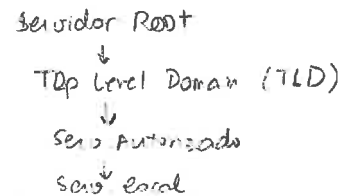 Servidor Root
Top Level Domain (TLD)
Serv Autorizado
Serv Local